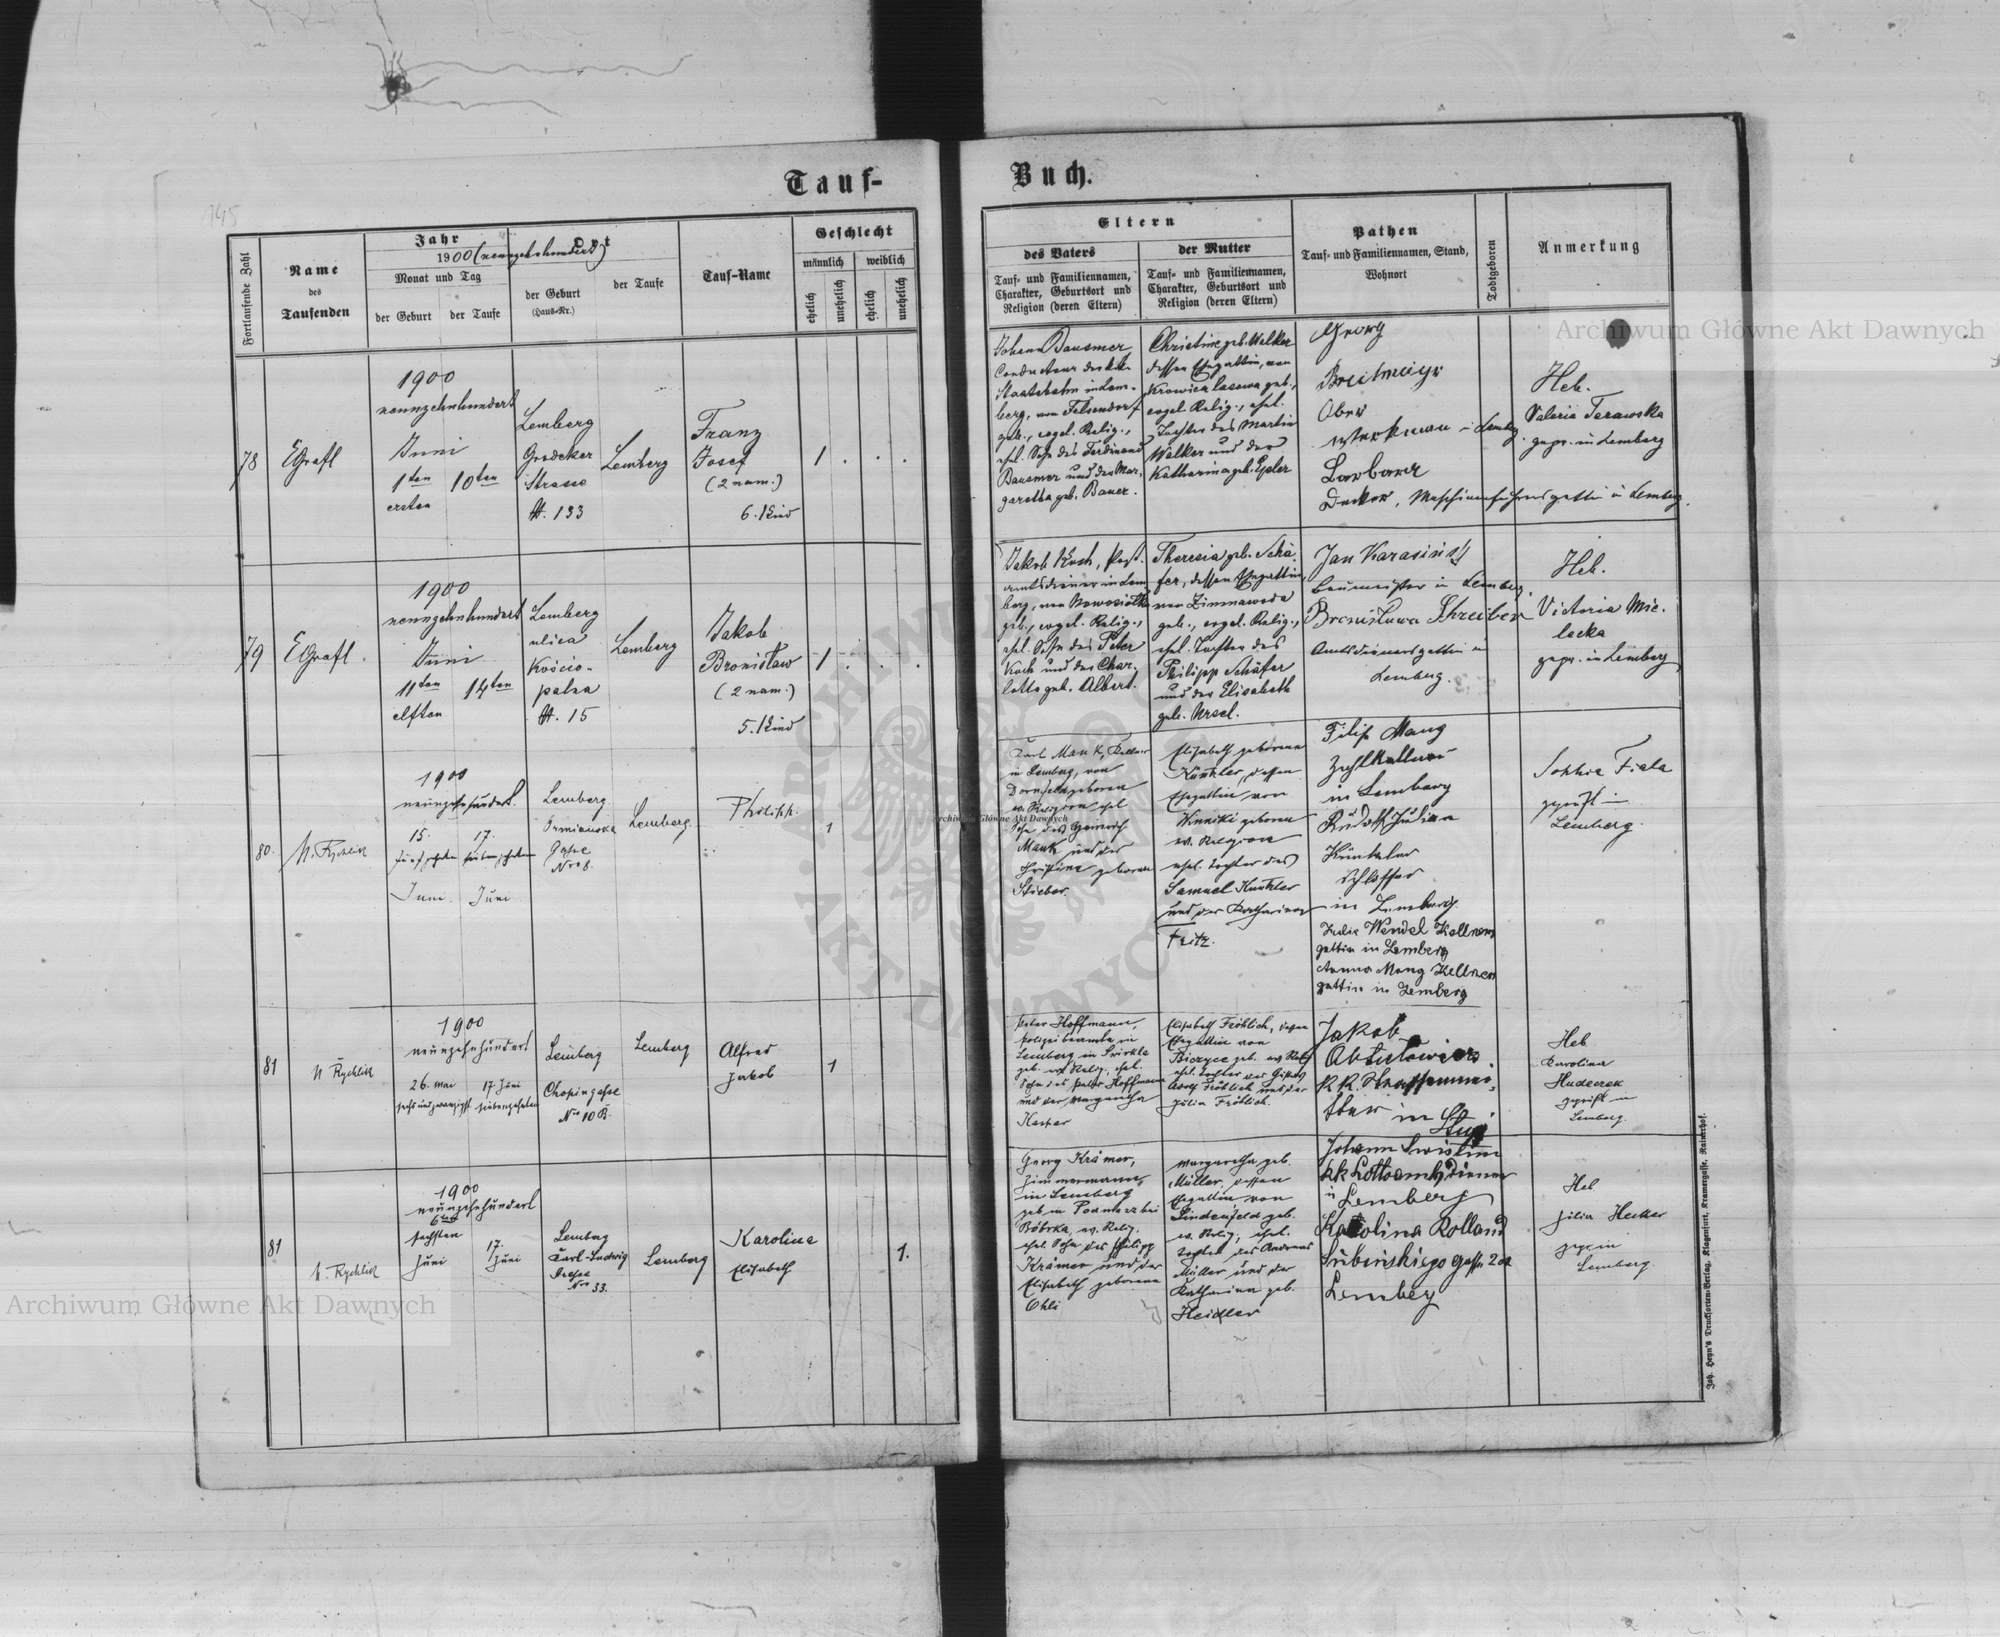 145
Tauf-
Fortlaufende Zahl
Name
des
Taufenden
Jahr
1900 (neunzehnhundert)
Monat und Tag
der Geburt
der Taufe
Ort
der Geburt
(Haus-Nr.)
der Taufe
Tauf-Name
Geschlecht
männlich
weiblich
ehelich
unehelich
ehelich
unehelich
78
EGrafl
1900
neunzehnhundert
Juni
1ten 10ten
ersten
Lemberg
Grodeker
Strasse
N. 133
Lemberg
Franz
Josef
(2 nam.)
6. Kind
1 . . .
79
EGrafl.
1900
neunzehnhundert
Juni
11ten 14ten
elften
Lemberg
ulica
Kościo-
palza
N. 15
Lemberg
Jakob
Bronisław
(2 nam.)
5. Kind
1 . . .
80.
N. Rychlik
1900
neunzehnhundert.
15. 17.
fünfzehnten siebenzehnten
Juni. Juni
Lemberg.
Ormianska
Gasse
Nro 8.
Lemberg.
Philipp.
1
81
N Rychlik
1900
neunzehnhundert
26. Mai 17 Juni
sechsundzwanzigst siebenzehnten
Lemberg
Chopingasse
No 10 B.
Lemberg
Alfred
Jakob
1
81
N. Rychlik
1900
neunzehnhundert
6ten
sechsten 17.
Juni Juni
Lemberg
Carl-Ludwig
Strasse
Nro 33.
Lemberg
Karolina
Elisabeth
1.
Buch.
Eltern
des Vaters
Tauf- und Familiennamen,
Charakter, Geburtsort und
Religion (deren Eltern)
der Mutter
Tauf- und Familiennamen,
Charakter, Geburtsort und
Religion (deren Eltern)
Pathen
Tauf- und Familiennamen, Stand,
Wohnort
Todtgeboren
Anmerkung
Johann Bausmer
Conducteur der k.k.
Staatsbahn in Lem-
berg, von Felsendorf
geb., evgel. Relig.,
ehel. Sohn des Ferdinand
Bausmer und der Mar-
garetha geb. Bauer.
Christine geb. Walker
dessen Ehegattin, von
Krowica lasowa geb.,
evgel. Relig., ehel.
Tochter des Martin
Walker und der
Katharina geb. Epler
Georg
Breitmeiye
Ober
werkmann in Lemberg.
Barbara
Decker, Maschinenführersgattin in Lemberg.
Heb.
Valeria Terawska
gepr. in Lemberg
Jakob Koch, Post-
amtsdiener in Lem-
berg, von Nowosiołka
geb., evgel. Relig.,
ehel. Sohn des Peter
Koch und der Char-
lotte geb. Albert.
Theresia geb. Schä-
fer, dessen Ehegattin,
von Zimnawoda
geb., evgel. Relig.,
ehel. Tochter des
Philipp Schäfer
und der Elisabeth
geb. Ursel.
Jan Karasiński
Baumeister in Lemberg.
Bronisława Schreiber
Amtsdienersgattin in
Lemberg.
Heb.
Victoria Mie-
lecka
gepr. in Lemberg
Carl Mank, Kellner
in Lemberg, von
Dornfeld geboren
ev. Religion ehel
Sohn des Heinrich
Mank und der
Christine geborene
Stieber
Elisabeth geborene
Künkler, dessen
Ehegattin, von
Winniki geboren
ev. Religion
ehel. Tochter des
Samuel Kunkler
und der Katharina
Fritz.
Filip Mang
Zahlkellner
in Lemberg
Rudolf Julian
Künkler
Schlosser
in Lemberg.
Julie Wendel Kellners
gattin in Lemberg
Anna Mang Kellners
gattin in Lemberg
Sophia Fiala
geprüft in
Lemberg.
Peter Hoffmann,
Polizeibeamte in
Lemberg in
geb. ev. Relig., ehel.
Sohn des Peter Hoffmann
und der Margaretha
Elisabeth Fröhlich, dessen
Ehegattin von
geb. ev. Relig.
ehel. Tochter des
Adolf Fröhlich und der
Julia Fröhlich.
Jakob
k.k. Strassenmei-
ster in Stryj
Heb
Karolina
Hudecrek
geprüft in
Lemberg.
Georg Krämer,
Zimmermann,
in Lemberg
geb. in Podmerz bei
Bóbrka, ev. Relig.
ehel. Sohn des Philipp
Krämer und der
Elisabeth geborene
Ohli
Margaretha geb.
Müller, dessen
Ehegattin von
Lindenfeld geb.
ev. Relig., ehel.
Tochter des Andreas
Müller und der
Katharina geb.
Heidler
Johann
kk Lottoamtsdiener
in Lemberg
Karolina Rolland
Lemberg
Heb
Julia Hecker
gepr in
Lemberg.
Joh. Heyn's Drucksorten-Verlag, Klagenfurt, Kramergasse, Kaiserhof.
Archiwum Główne Akt Dawnych
Archiwum Główne Akt Dawnych
Archiwum Główne Akt Dawnych
ARCHIWUM GŁÓWNE AKT DAWNYCH